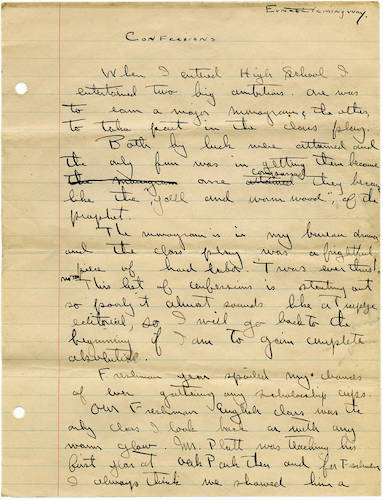 Ernest Hemingway.
CONFESSIONS
When I entered High School I
entertained two big ambitions. One was
to earn a major monogram; the other,
to take part in the class play.
Both by luck were attained and
the only fun was in getting them because
the monogram once attained they became
like the "gall and wormwood", of the
prophet.
The monogram is in my bureau drawer
and the class play was a frightful
piece of hard labor. 'Twas ever thus.
This list of confessions is starting out
so poorly it almost sounds like a
editorial, so I will go back to the
beginning if I am to gain complete
absolution.
Freshman year spoiled my chances
of ever guttering any scholarship cups.
Our Freshman English class was the
only class I look back on with any
warm glow. Mr. Platt was teaching his
first year at Oak Park then and
I always think we showed him a